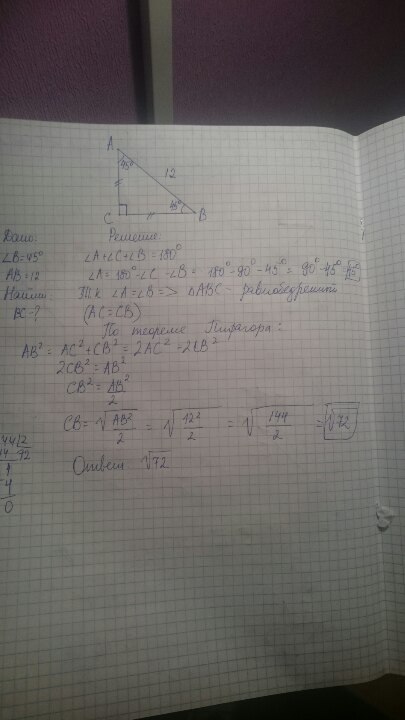 A
45°
12
C
45°
B
Дано:
∠B=45°
AB=12
Найти
BC-?
Решение:
∠A+∠C+∠B=180°
∠A=180°-∠C-∠B= 180°-90°-45°= 90°-45° 45°
Т.к ∠A=∠B=> △ABC- равнобедренный
(AC=CB)
По теореме Пифагора:
AB²= AC²+CB²=2AC²=2CB²
2CB²=AB²
CB²=AB²/2
CB=√AB²/2 = √12²/2 = √144/2 =√72
Ответ √72
44|2
14 72
4
0